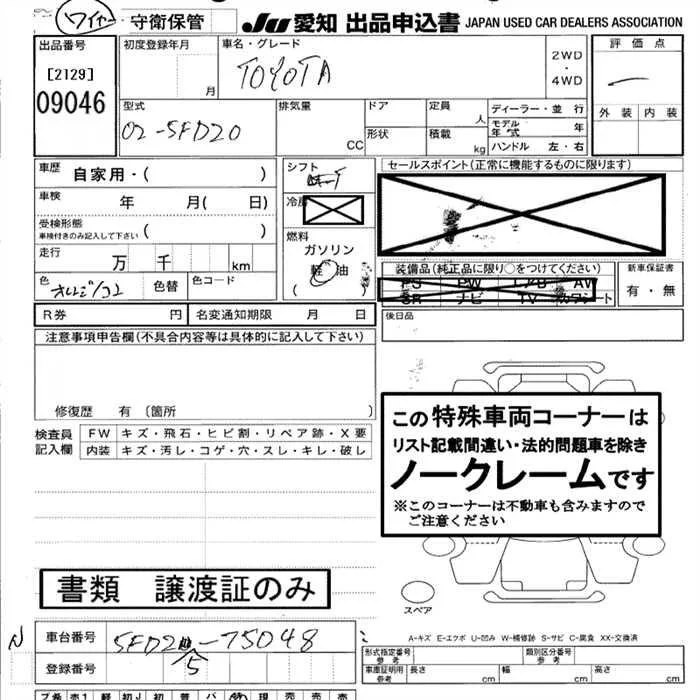 ワイヤー 守衛保管 JU 愛知 出品申込書 JAPAN USED CAR DEALERS ASSOCIATION
出品番号 初度登録年月 車名・グレード 評価点
[2129] 月 TOYOTA 2WD・4WD
09046 外装 内装
型式 排気量 ドア 定員 ディーラー・並行
02-5FD20 CC 形状 人 モデル年式 年
積載 kg ハンドル 左・右
車歴 自家用・( ) シフト セールスポイント(正常に機能するものに限ります)
車検 年 月( 日) 冷房
受検形態 車検付きのみ記入して下さい ( ) 燃料
ガソリン
走行 万 千 km 軽油
( )
色 オレンジ/コゝ 色替 色コード 装備品(純正品に限り○をつけてください) 新車保証書
PS PW エアB AV 有・無
SR ナビ TV カワシート
R券 円 名変通知期限 月 日 後日品
注意事項申告欄(不具合内容等は具体的に記入して下さい)
修復歴 有 〔箇所 〕
検査員記入欄 FW キズ・飛石・ヒビ割・リペア跡・X要
内装 キズ・汚レ・コゲ・穴・スレ・キレ・破レ
この特殊車両コーナーは
リスト記載間違い・法的問題車を除き
ノークレームです
※このコーナーは不動車も含みますので
ご注意ください
書類 譲渡証のみ
スペア
A-キズ E-エクボ U-凹み W-補修跡 S-サビ C-腐食 XX-交換済
N 車台番号 5FD25-75048
登録番号
形式指定番号 参考 類別区分番号 参考
車庫証明用 参考 長さ cm 幅 cm 高さ cm